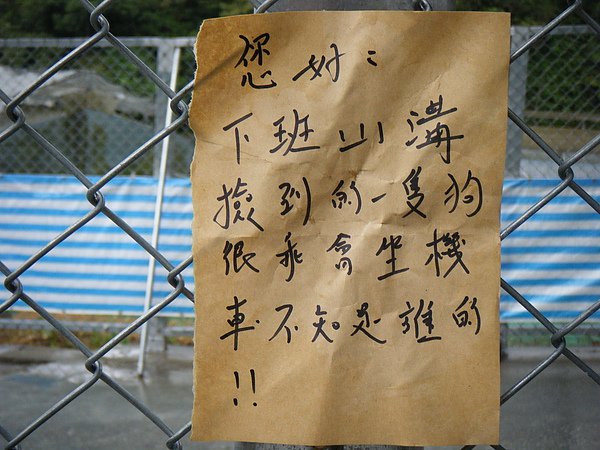 您好：
下班山溝
撿到的一隻狗
很乖會坐機
車不知是誰的
!!